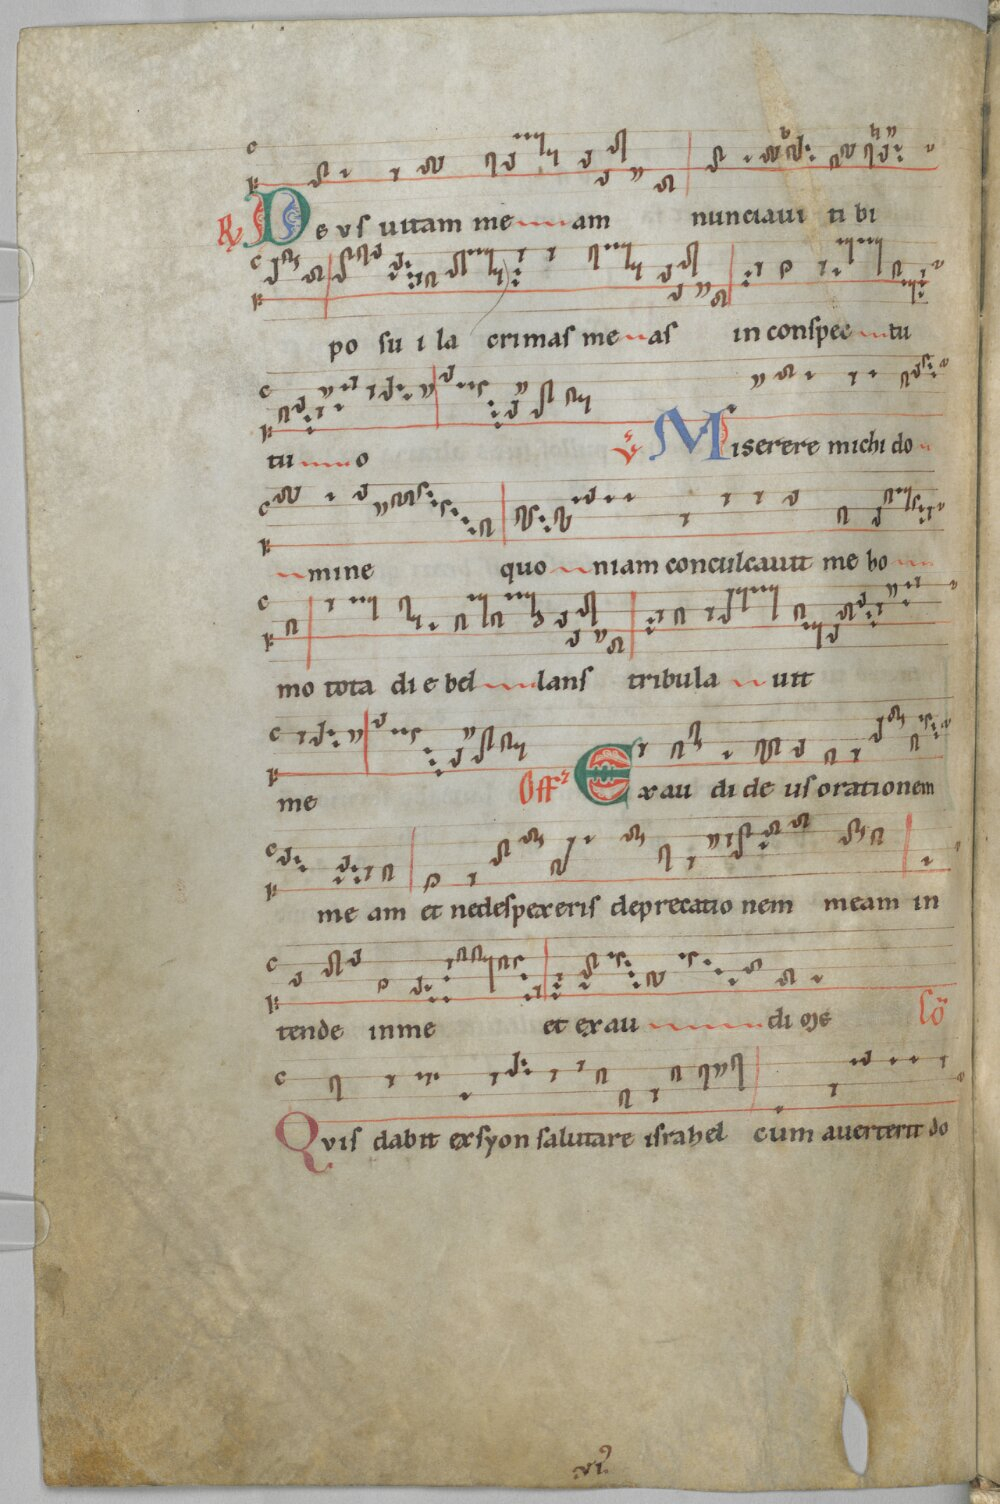 R Deus uitam meam nunciaui tibi
posui lacrimas meas in conspectu
tuo V Miserere michi do
mine quoniam conculcauit me ho
mo tota die bellans tribulauit
me Off Exaudi deus orationem
meam et nedespexeris deprecationem meam in
tende inme et exaudi me Co
Quis dabit exsyon salutare israhel cum auerterit do
vi